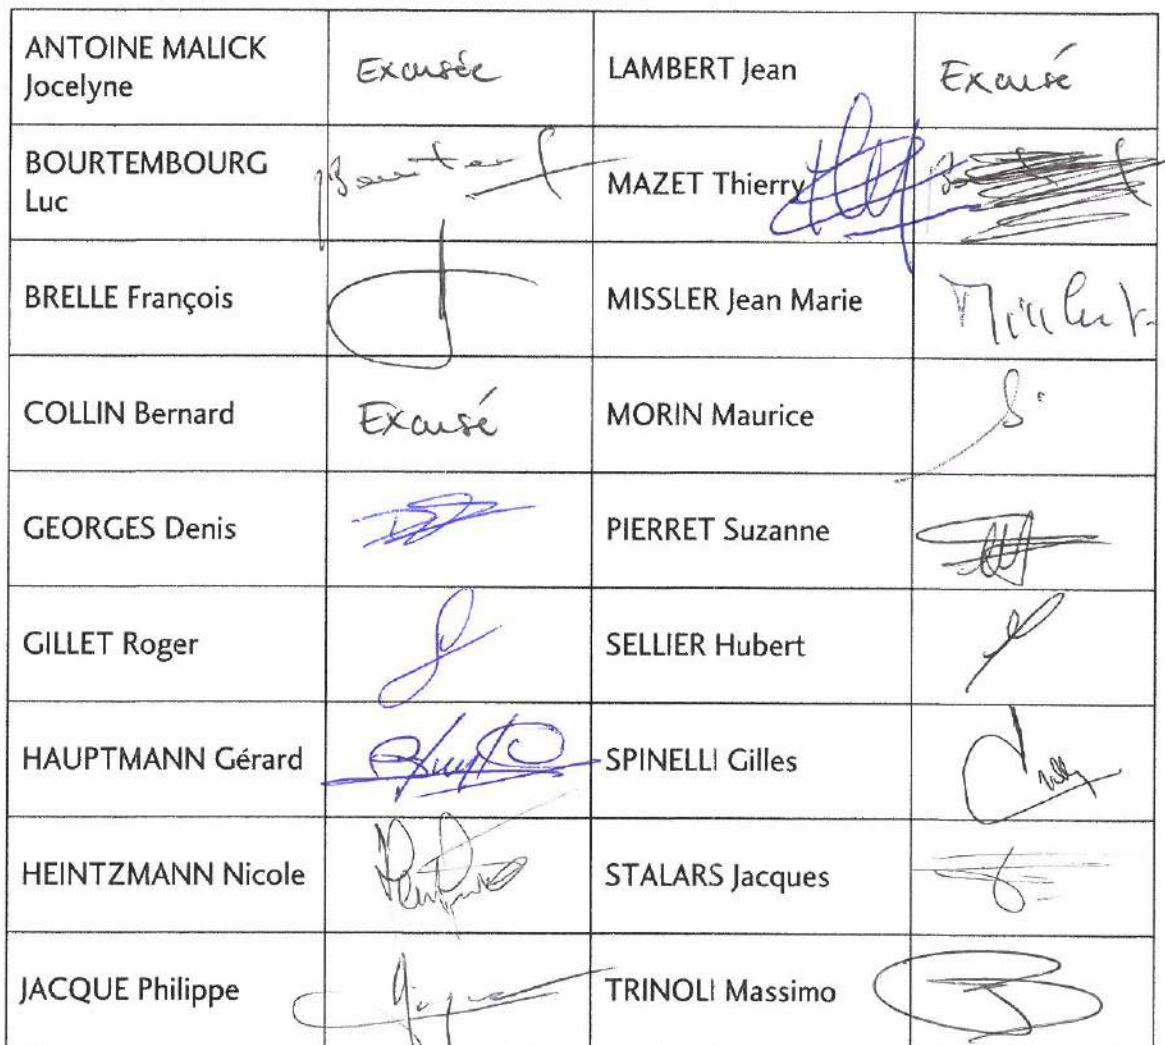 ANTOINE MALICK
Jocelyne
Excusée
LAMBERT Jean
Excusé
BOURTEMBOURG
Luc
MAZET Thierry
BRELLE François
MISSLER Jean Marie
COLLIN Bernard
Excusé
MORIN Maurice
GEORGES Denis
PIERRET Suzanne
GILLET Roger
SELLIER Hubert
HAUPTMANN Gérard
SPINELLI Gilles
HEINTZMANN Nicole
STALARS Jacques
JACQUE Philippe
TRINOLI Massimo